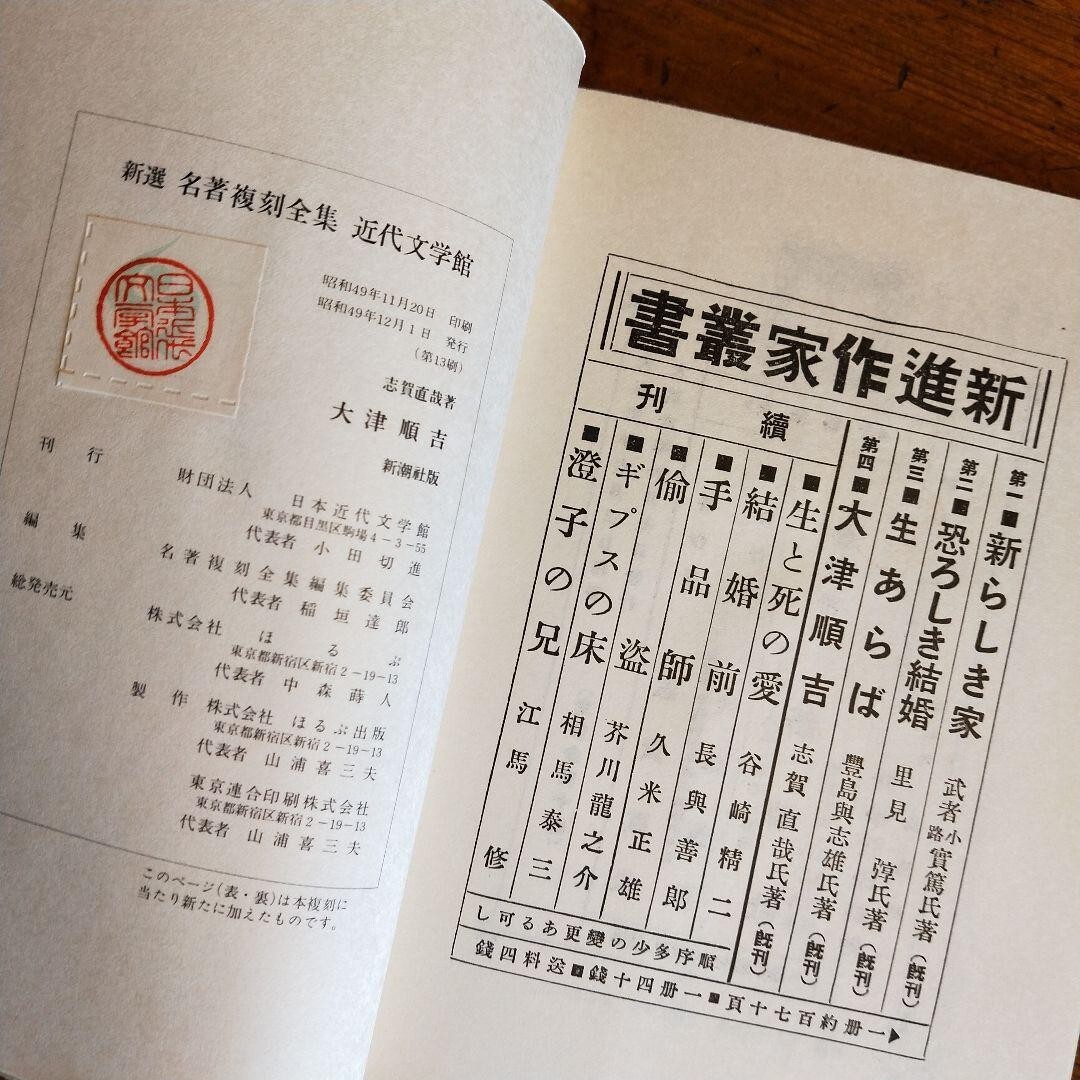 新選 名著複刻全集 近代文学館
日本近代文学館
昭和49年11月20日 印刷
昭和49年12月1日 発行
(第13刷)
志賀直哉著
大津順吉
新潮社版
刊行 財団法人 日本近代文学館
東京都目黒区駒場4-3-55
代表者 小田切進
編集 名著複刻全集編集委員会
代表者 稲垣達郎
総発売元 株式会社 ほるぷ
東京都新宿区新宿2-19-13
代表者 中森蒔人
製作 株式会社 ほるぷ出版
東京都新宿区新宿2-19-13
代表者 山浦喜三夫
東京連合印刷株式会社
東京都新宿区新宿2-19-13
代表者 山浦喜三夫
このページ(表・裏)は本複刻に
当たり新たに加えたものです。
新進作家叢書
第一■新らしき家 武者小路實篤氏著(既刊)
第二■恐ろしき結婚 里見弴氏著(既刊)
第三■生あらば 豐島與志雄氏著(既刊)
第四■大津順吉 志賀直哉氏著(既刊)
續刊
■生と死の愛 谷崎精二
■結婚前 長與善郎
■手品師 久米正雄
■偷盜 芥川龍之介
■ギプスの床 相馬泰三
■澄子の兄 江馬修
順序多少の變更ある可し
▶一册約百七十頁■一册四十錢■送料四錢